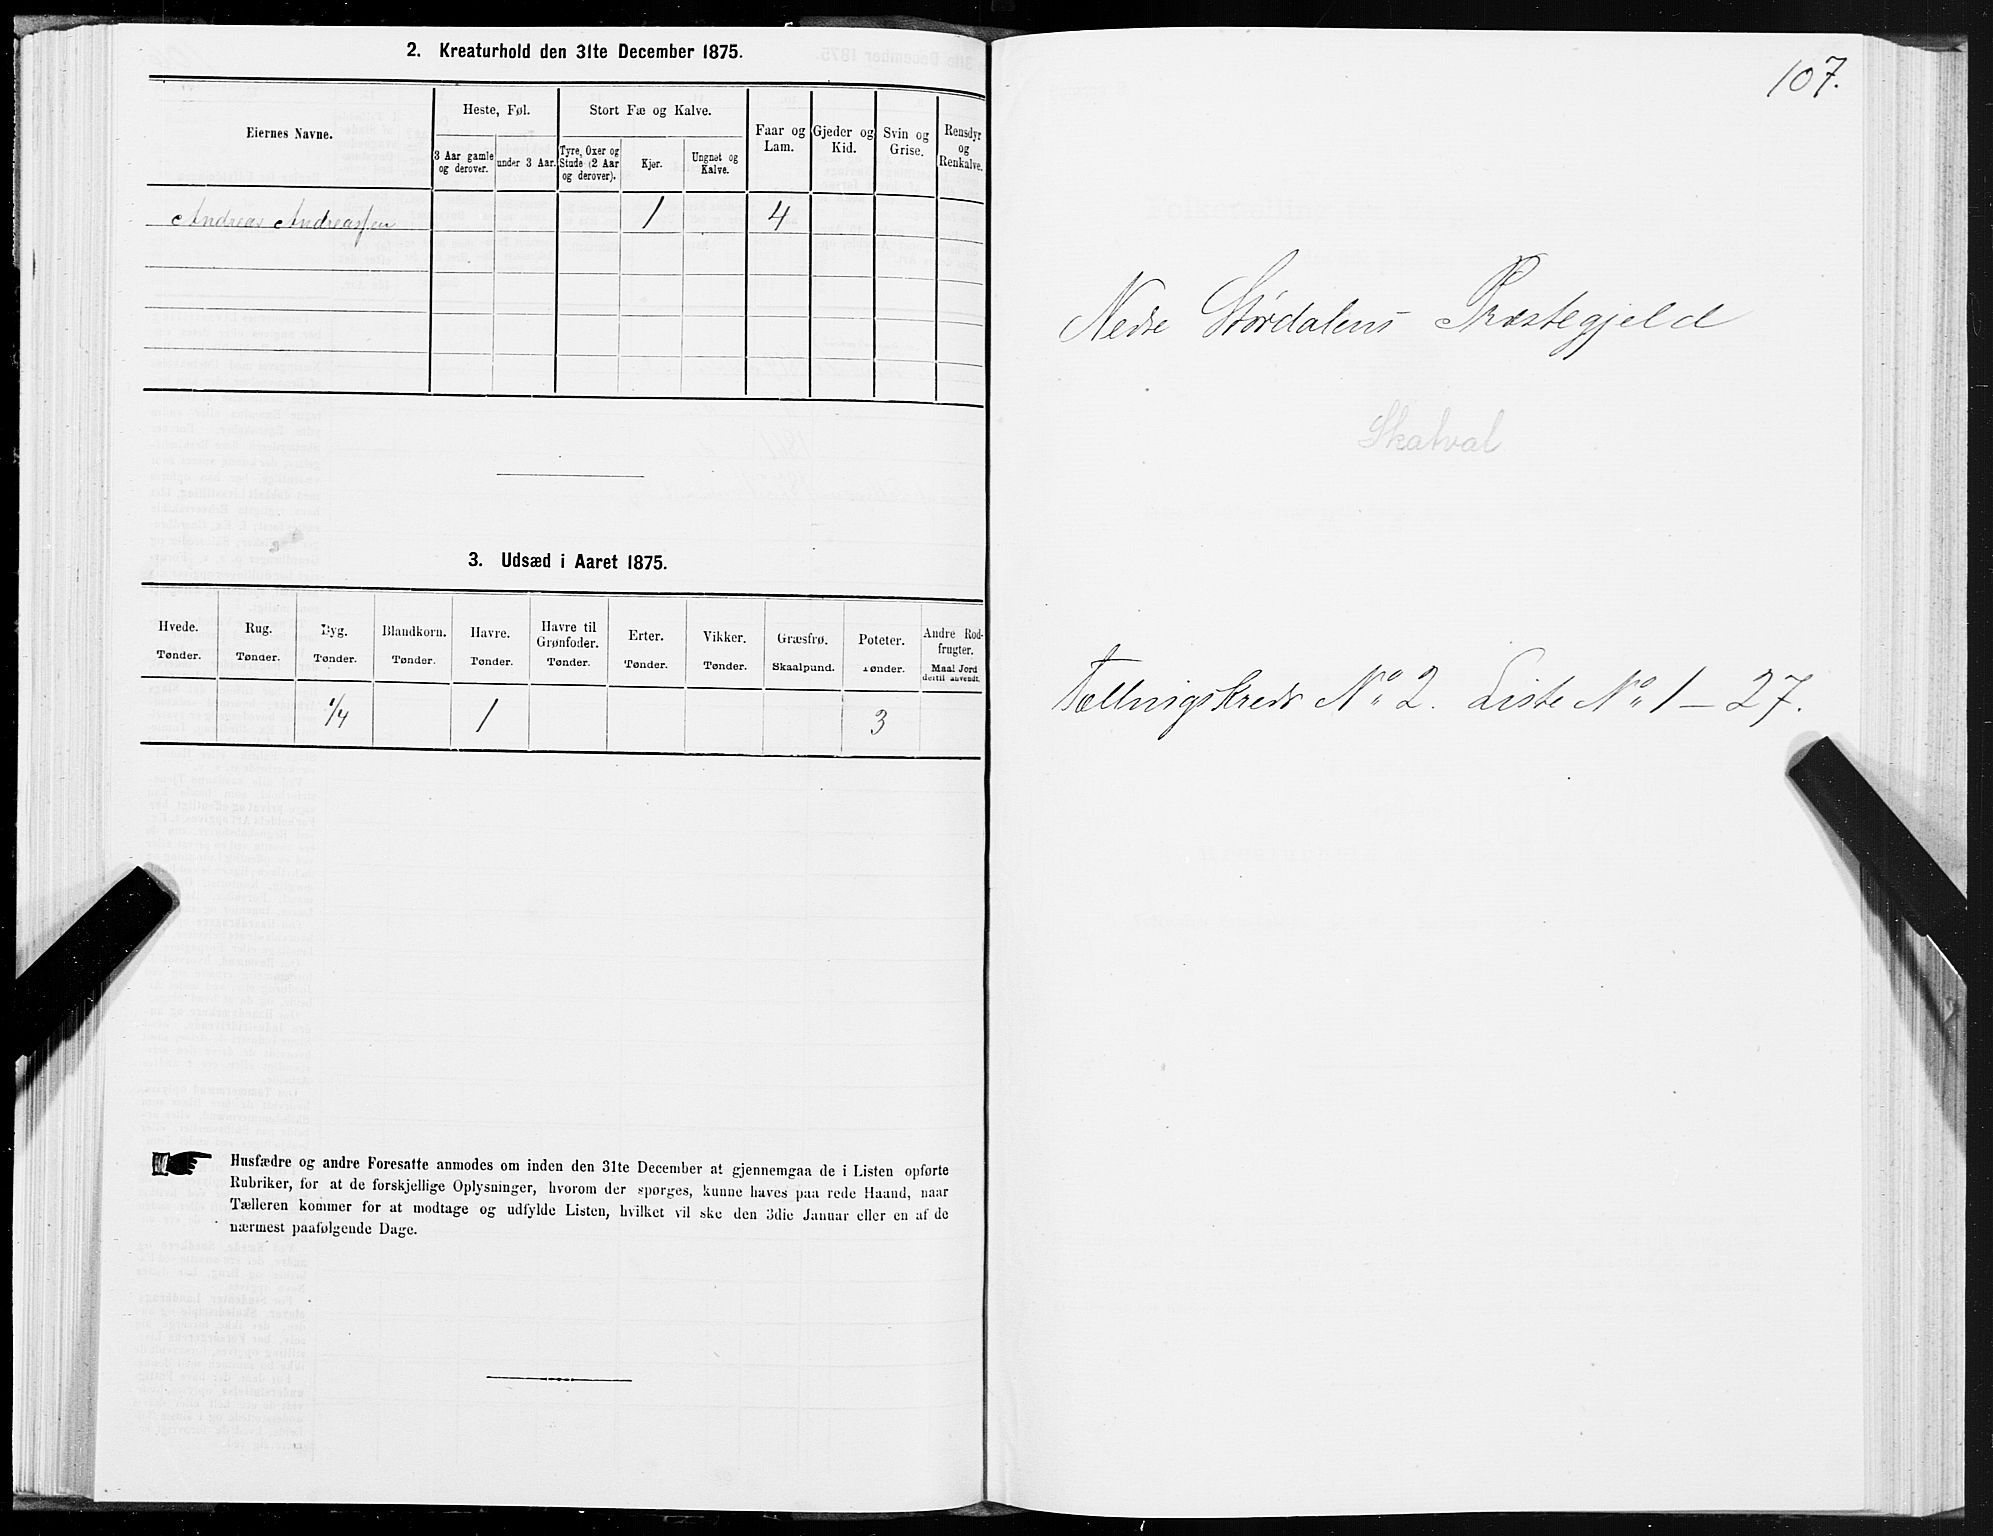 2. Kreaturhold den 31te December 1875.
Eiernes Navne.
Heste, Føl.
Stort Fæ og Kalve.
Faar og Lam.
Gjeder og Kid.
Svin og Grise.
Rensdyr og Renkalve.
3 Aar gamle og derover.
under 3 Aar.
Tyre, Oxer og Stude (2 Aar og derover).
Kjør.
Ungnøt og Kalve.
Andreas Andreassen 1 4
3. Udsæd i Aaret 1875.
Hvede. Rug. Byg. Blandkorn. Havre. Havre til Grønfoder. Erter. Vikker. Græsfrø. Poteter. Andre Rodfrugter.
Tønder. Tønder. Tønder. Tønder. Tønder. Tønder. Tønder. Tønder. Skaalpund. Tønder. Maal Jord dertil anvendt.
1/4 1 3
Husfædre og andre Foresatte anmodes om inden den 31te December at gjennemgaa de i Listen opførte
Rubriker, for at de forskjellige Oplysninger, hvorom der spørges, kunne haves paa rede Haand, naar
Tælleren kommer for at modtage og udfylde Listen, hvilket vil ske den 3die Januar eller en af de
nærmest paafølgende Dage.
107.
Nedre Størdalens Præstegjeld
Skatval
Tællnigskreds No 2. Liste No 1 - 27.